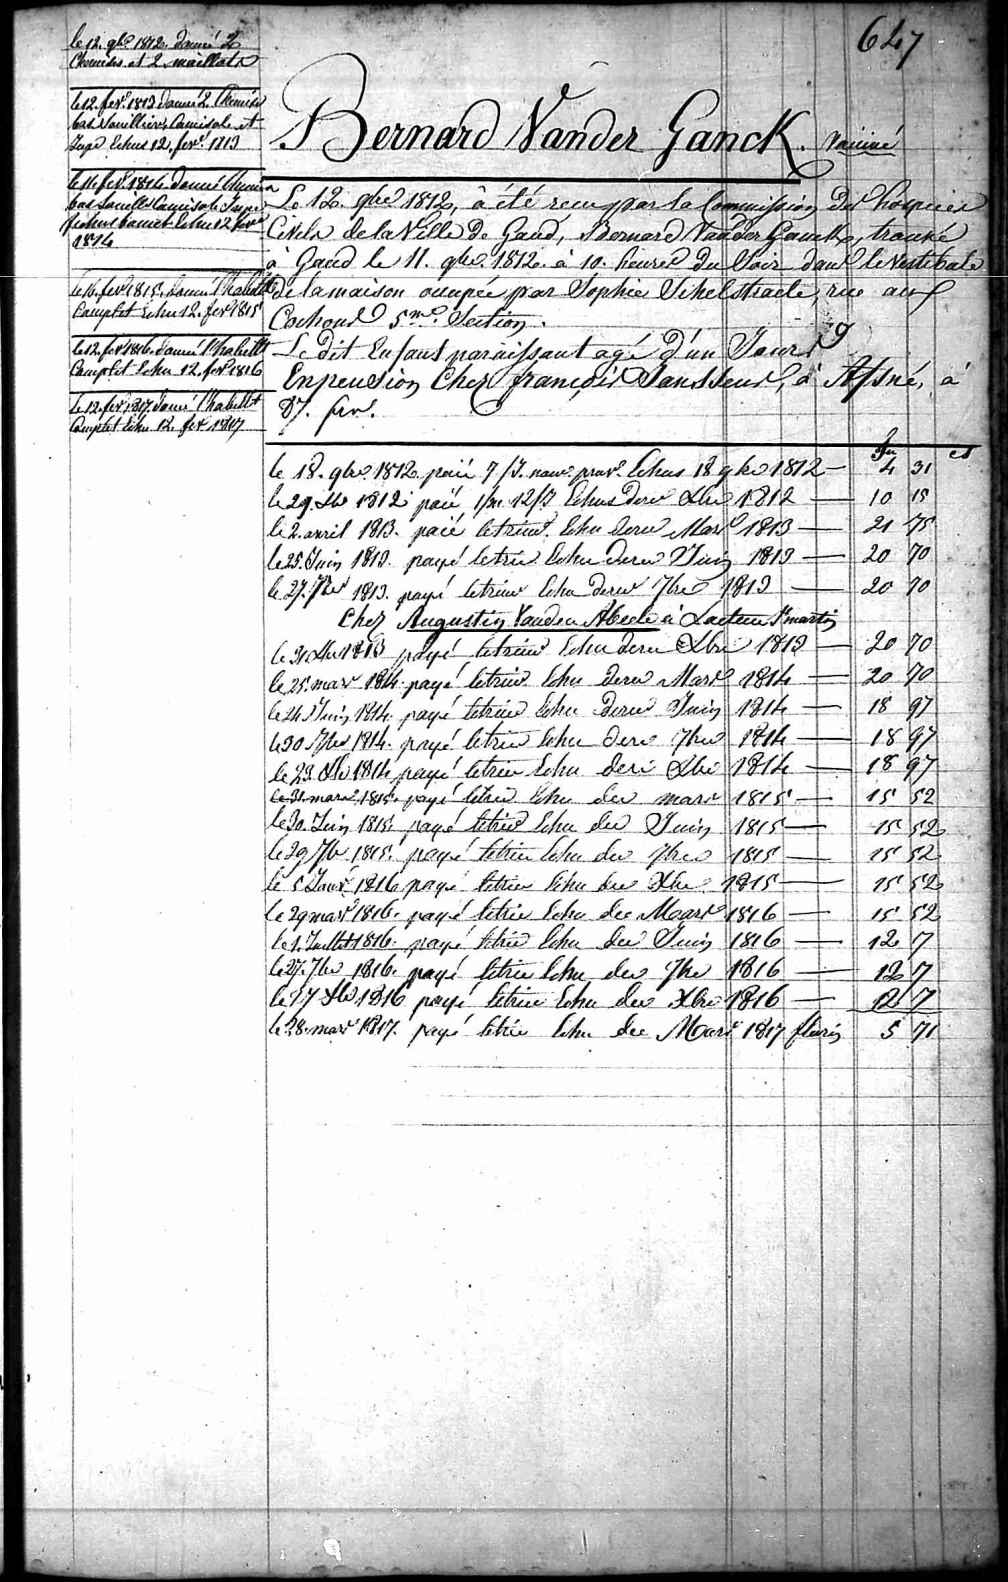 647
le 12. 9bre 1812. donné 2
Chemises et 2 maillots
le 12. fevr. 1813 donné 2. Chemises
bas souilliers, Camisole et
Jupe Echus 12. fevr. 1813
le 16. fevr. 1814. donné Chemise
bas souilles Camisole Jupe
fichus bonnet Echu 12 fevr
1814
le 16. fevr 1815. donné l'habillt
Complet Echu 12. fevr 1815
le 12. fevr 1816. donné l'habillt
Complet Echu 12. fevr 1816
le 12. fevr 1817. donné l'habillt
Complet Echu 12. fevr 1817
Bernard Vander Ganck. Vaciné
Le 12. 9bre 1812, à été recu par la Commission des hospices
Civils de la Ville de Gand, Bernard Vander Ganck, trouvé
à Gand le 11. 9bre. 1812. à 10. heures du Soir dans le Vestibule
de la maison occupée par Sophie Schelstraete, rue aux
Cochons 5me. Section.
Le dit Enfant paraissant agé d'un Jour
En pension Chez françois Janssens, à Afsné, à
87. frs.
fr cs
le 18. 9bre. 1812. paié 7/J. nour. prov. Echus 18 9bre 1812 — 4 31
le 29. Xbr 1812 paié 1/m. 12/J Echus derr Xbre 1812 — 10 15
le 2. avril 1813. paié le trimr. Echu derr Mars 1813 — 21 75
le 25. Juin 1813. payé le trim Echu derr Juin 1813 — 20 70
le 27. 7br 1813. payé le trimr Echu derr 7bre 1813 — 20 70
Chez Augustin Vanden Abeele à Laethem St martin
le 31. Xbr 1813 payé le trimr Echu derr Xbre 1813 — 20 70
le 25. mars 1814. payé le trimr Echu derr Mars 1814 — 20 70
le 24 Juin 1814. payé le trimr Echu derr Juin 1814 — 18 97
le 30 7br 1814. payé le trim Echu derr 7bre 1814 — 18 97
le 29. Xbr 1814 payé le trim Echu derr Xbre 1814 — 18 97
le 31. mars 1815. payé le trim Echu der mars 1815 — 15 52
le 30. Juin 1815. payé le trim Echu der Juin 1815 — 15 52
le 29 7br 1815. payé le trim Echu der 7bre 1815 — 15 52
le 5 Janvr. 1816 payé le trim Echu der Xbre 1815 — 15 52
le 29 mars 1816. payé le trim Echu der Mars 1816 — 15 52
le 1. Juillet 1816. payé le trim Echu der Juin 1816 — 12 7
le 27. 7br 1816. payé le trim Echu der 7bre 1816 — 12 7
le 27 Xbr 1816 payé le trim Echu der Xbre 1816 — 12 7
le 28. mars 1817. payé le trim Echu der Mars 1817 florins 5 71